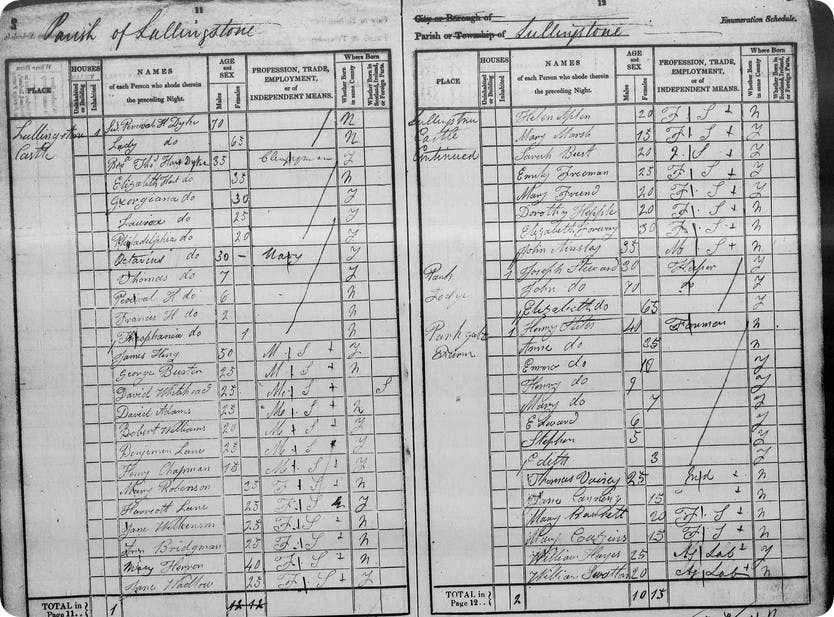 8
11
Parish of Lullingstone
PLACE
HOUSES
Uninhabited or Building
Inhabited
NAMES
of each Person who abode therein
the preceding Night.
AGE
and
SEX
Males
Females
PROFESSION, TRADE,
EMPLOYMENT,
or of
INDEPENDENT MEANS.
Where Born
Whether Born in same County
Whether Born in Scotland, Ireland, or Foreign Parts.
Lullingstone 1 Percival H Dyke 70 N
Castle Lady do 65 N
Thos Hart Dyke 35 Clergyman Y
Elizabeth Hart do 35 N
Georgeana do 30 Y
do 25 Y
Philadelphia do 20 Y
Octavius do 30 – Navy Y
Thomas do 7 Y
Percival H do 6 N
Francis H do 2 N
Theophania do 1 N
James King 50 M S + Y
George Buston 25 M S + N
David Whitehead 25 M S + S
David Adams 25 M S + N
Robert Williams 20 M S + Y
Benjamin Lane 25 M S Y
Henry Chapman 15 M S + Y
Mary Robinson 35 F S + N
Harriott Lane 25 F S Y
Jane Wilkenson 25 F S + N
Bridgman 25 F S + N
Mary Herron 40 F S + N
Jane Wadlow 25 F S + Y
TOTAL in
Page 11..
1
12 12
12
City or Borough of
Parish or Township of Lullingstone
Enumeration Schedule.
PLACE
HOUSES
Uninhabited or Building
Inhabited
NAMES
of each Person who abode therein
the preceding Night.
AGE
and
SEX
Males
Females
PROFESSION, TRADE,
EMPLOYMENT,
or of
INDEPENDENT MEANS.
Where Born
Whether Born in same County
Whether Born in Scotland, Ireland, or Foreign Parts.
Lullingstone Helen 20 F S + N
Castle Mary Marsh 15 F S + Y
Continued Sarah Bust 20 F S + Y
Emily Freeman 25 F S + Y
Mary Friend 20 F S + Y
Dorothy 20 F S + N
Elizabeth 30 F S + N
John 35 M S + N
Park 1 Joseph Steward 30 Keeper Y
Lodge John do 70 do Y
Elizabeth do 65 Y
Park gate 1 Henry 40 Farmer N
Anne do 35 N
Emma do 10 Y
Henry do 9 Y
Mary do 7 Y
Edward 6 Y
Stephen 5 Y
Edith 3 Y
Thomas 25 + N
Jane 15 N
Mary 20 F S + N
Mary 15 F S + N
William Hayes 25 Ag Lab + Y
William 20 Ag Lab + N
TOTAL in
Page 12..
2
10 15